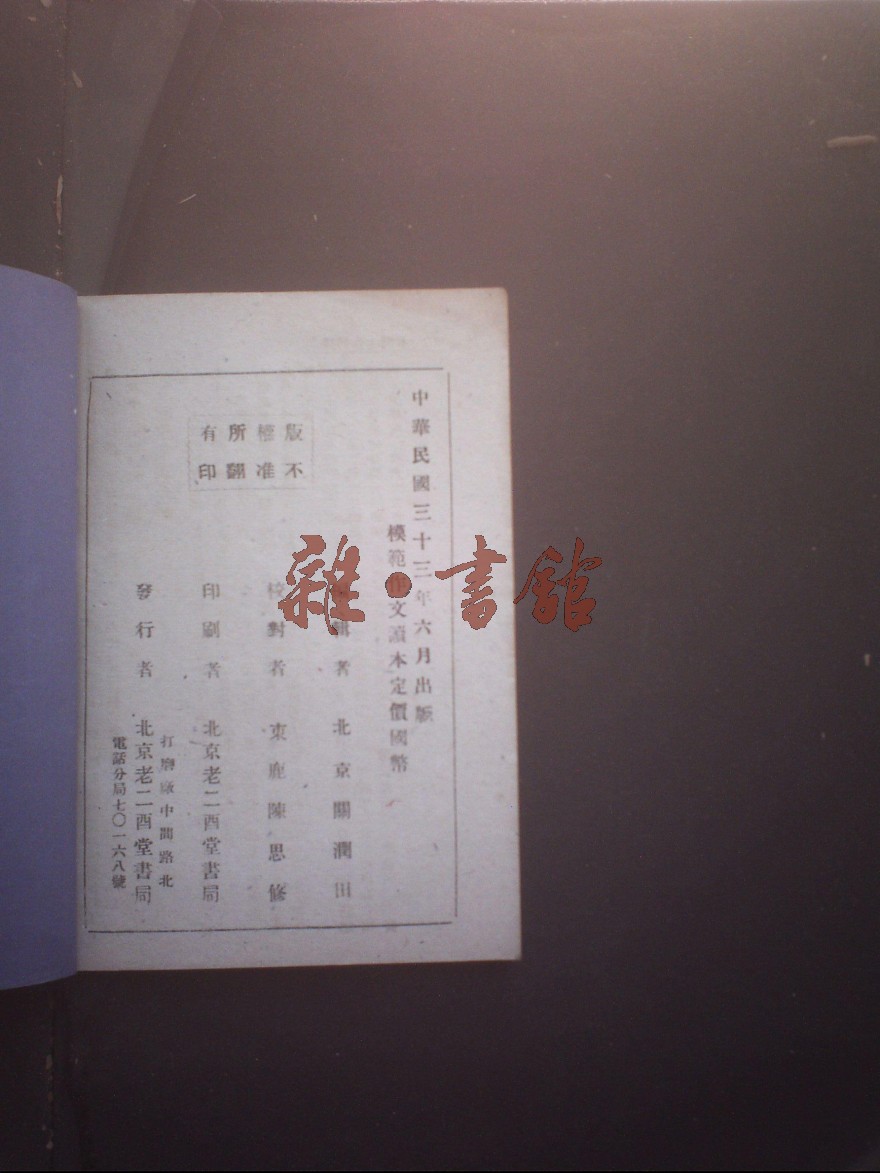 中華民國三十三年六月出版
模範作文讀本定價國幣
版權所有
不准翻印
編輯者 北京關潤田
校對者 束鹿陳思修
印刷者 北京老二酉堂書局
打磨廠中間路北
發行者 北京老二酉堂書局
電話分局七〇一六八號
雜·書館